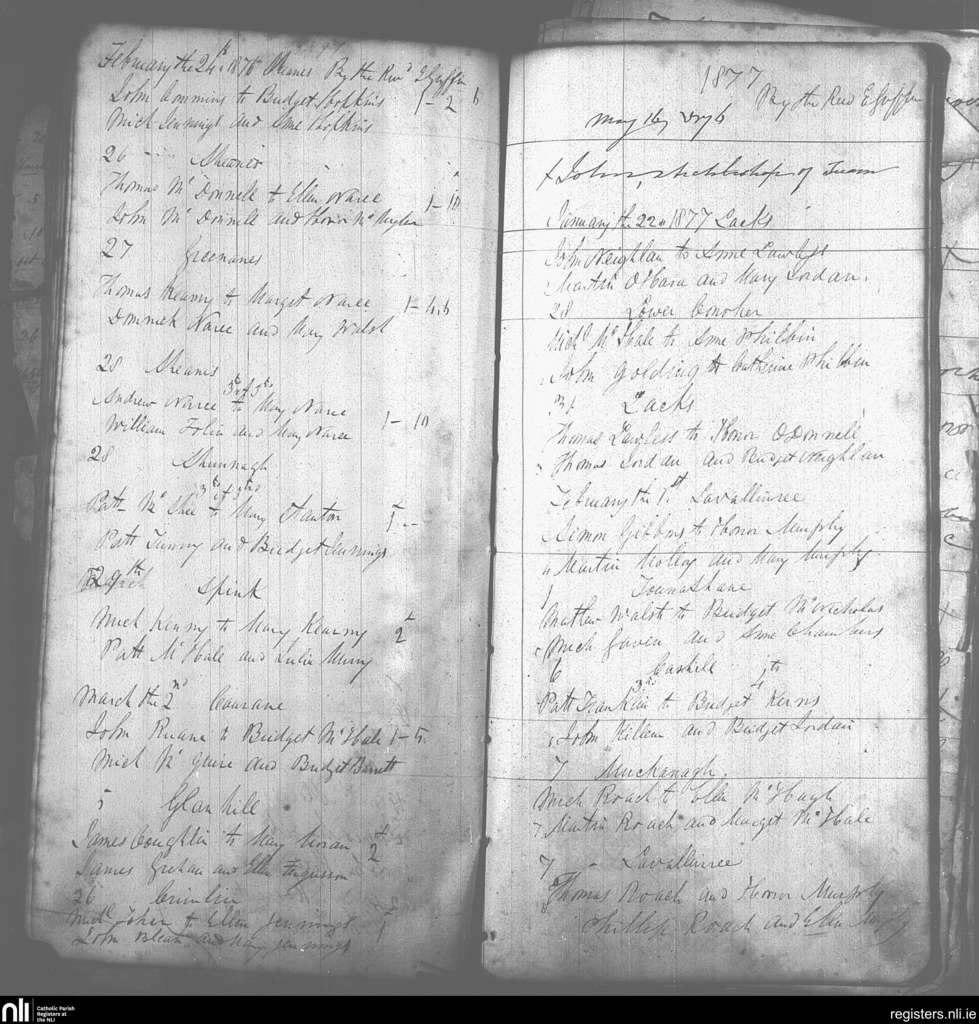 February the 24th 1876 Sheanes By the Revd E Griffin
John Commins to Bridget Hopkins 1-2 6
Mich Jennings and Anne Hopkins
26 Sheanes
Thomas Mc Donnell to Ellen Naree 1-10
John Mc Donnell and Honor
27 Greenanes
Thomas Kearny to Marget Naree
Dominick Naree and Mary Walsh
28 Sheanes
Andrew Naree to Mary Naree 1-10
William and Mary Naree
28
Patt Mc to Mary Stanton
Patt Tunny and Bridget Jennings
29th Spink
Mich Kearny to Mary Kearny 2
Patt McHale and Julia
March the 2nd
John Ruane to Bridget McHale
Mich Mc Guire and Bridget Barrett
5 Glanhill
James Coughlin to Mary Moran 2
James and Ellen Ferguson
26
to Ellen Jennings 1
John and Mary Jennings
1877
By the Revd E Griffin
May 16, 1876
+ John, Archbishop of Tuam
January the 22d 1877 Lacks
John Neighlan to Anne Lawless
Martin O'Hara and Mary Jordan.
28 Lower Conoher
Michl Mc Hale to Anne Philbin
John Golding to Catherine Philbin
31 Lacks
Thomas Lawless to Honor O Donnell
Thomas Jordan and Bridget Neighlan
February the 1st Lavallinree
Simon Gibbons to Honor Murphy
Martin Molloy and Mary Murphy
1
Mathew Walsh to Bridget Mc Nicholas
Mich Gaven and Anne Chambers
6
Patt Frankin to Bridget Kerns
John Killeen and Bridget Jordan
7 Muckanagh.
Mich Roach to Ellen Mc Hugh
Martin Roach and Marget Mc Hale
7 Lavallinree
Thomas Roach and Honor Murphy
Phillip Roach and Ellen
nli
Catholic Parish
Registers at
the NLI
registers.nli.ie